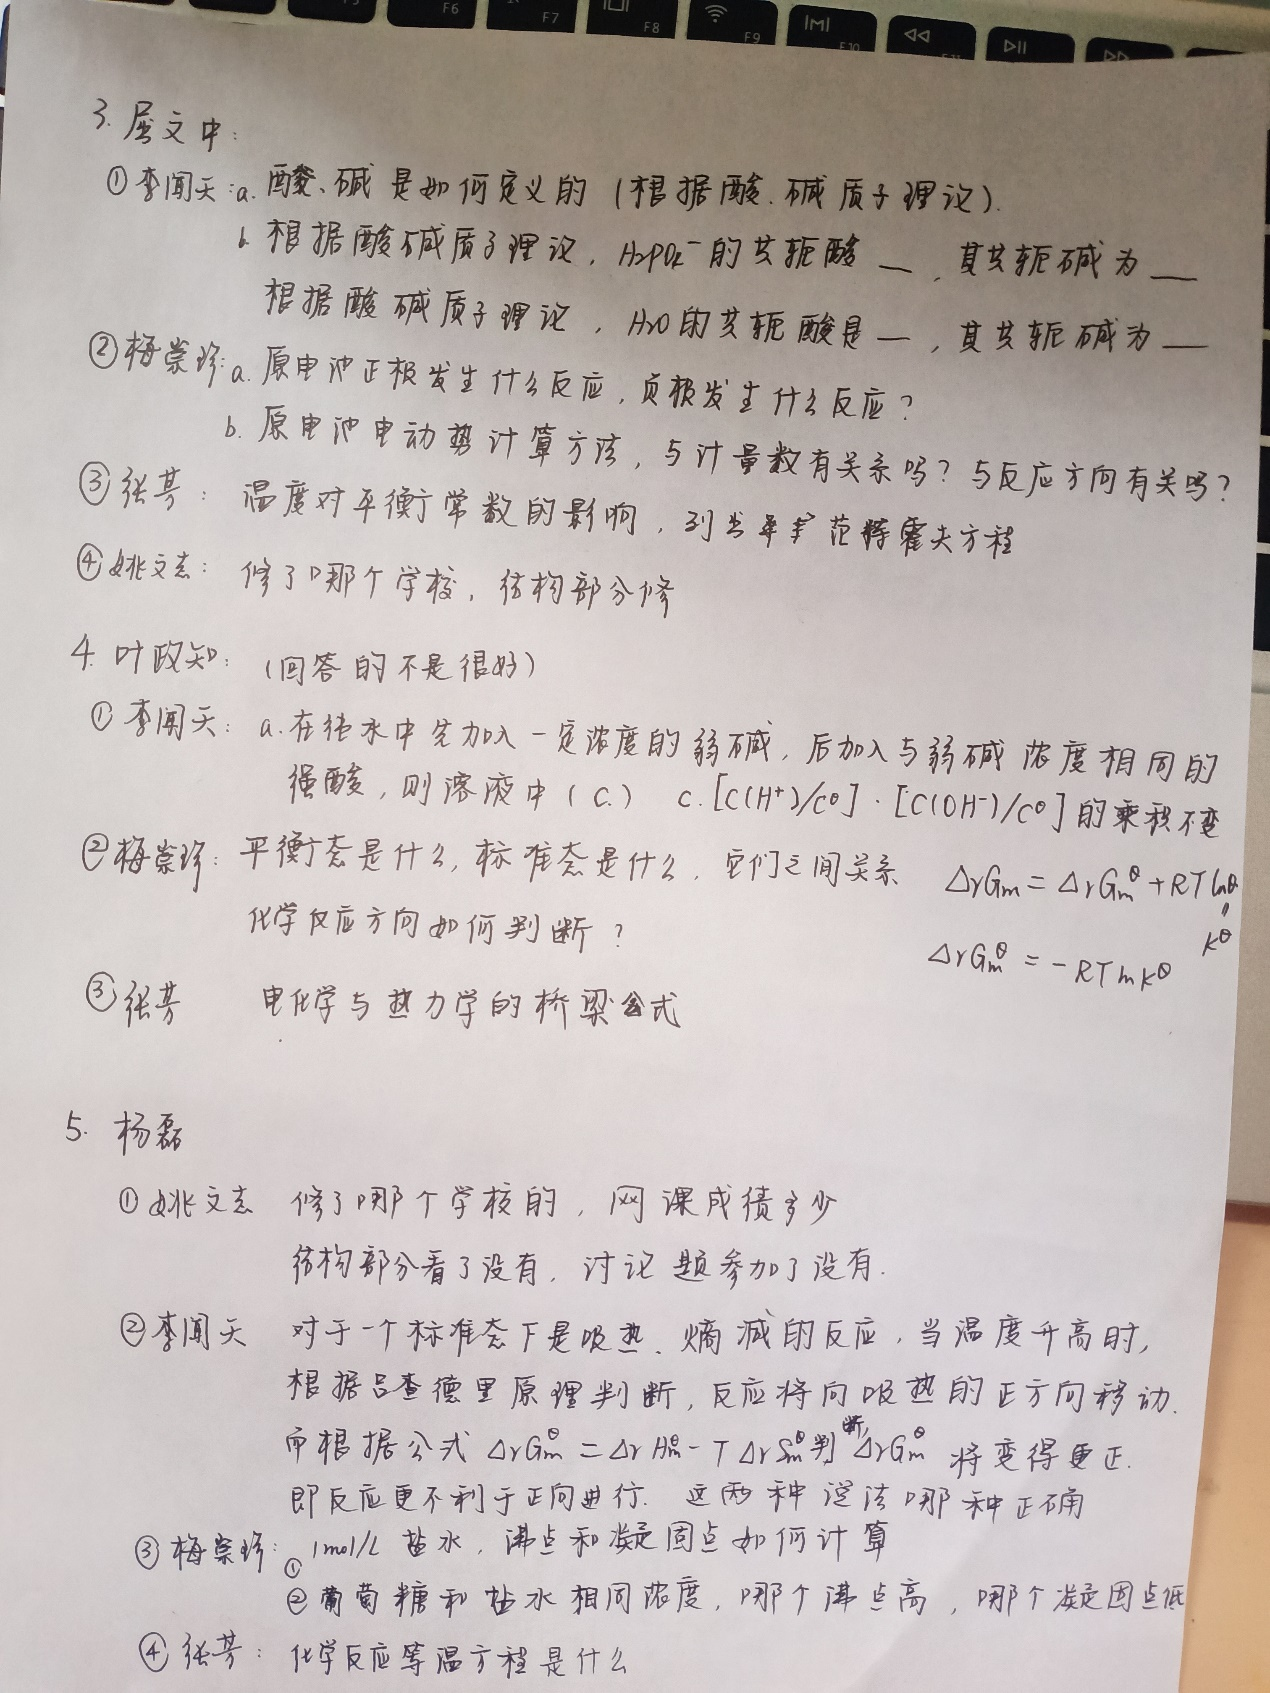 F6
F7
F8
F9
F10
3. 屈文中:
①李闻天: a. 酸、碱是如何定义的(根据酸、碱质子理论).
b. 根据酸碱质子理论, H2PO4⁻的共轭酸__, 其共轭碱为__
根据酸碱质子理论, H2O的共轭酸是__, 其共轭碱为__
②梅崇珍: a. 原电池正极发生什么反应, 负极发生什么反应?
b. 原电池电动势计算方法, 与计量数有关系吗? 与反应方向有关吗?
③张芳: 温度对平衡常数的影响, 列出 范特霍夫方程
④姚文志: 修了哪个学校, 结构部分修
4. 叶政知: (回答的不是很好)
①李闻天: a. 在纯水中先加入一定浓度的弱碱, 后加入与弱碱浓度相同的
强酸, 则溶液中(C.) C. [C(H⁺)/C^θ]·[C(OH⁻)/C^θ]的乘积不变
②梅崇珍: 平衡态是什么, 标准态是什么, 它们之间关系 ΔrGm = ΔrGm^θ + RT lnθ
化学反应方向如何判断? 〃 K^θ
ΔrGm^θ = -RT ln K^θ
③张芳 电化学与热力学的桥梁公式
5. 杨磊
①姚文志 修了哪个学校的, 网课成绩多少
结构部分看了没有, 讨论题参加了没有.
②李闻天 对于一个标准态下是吸热、熵减的反应, 当温度升高时,
根据吕查德里原理判断, 反应将向吸热的正方向移动.
而根据公式 ΔrGm^θ = ΔrHm^θ - TΔrSm^θ 判断 ΔrGm^θ 将变得更正.
即反应更不利于正向进行. 这两种说法哪种正确
③梅崇珍: ① 1mol/L 盐水, 沸点和凝固点如何计算
②葡萄糖和盐水相同浓度, 哪个沸点高, 哪个凝固点低
④张芳: 化学反应等温方程是什么